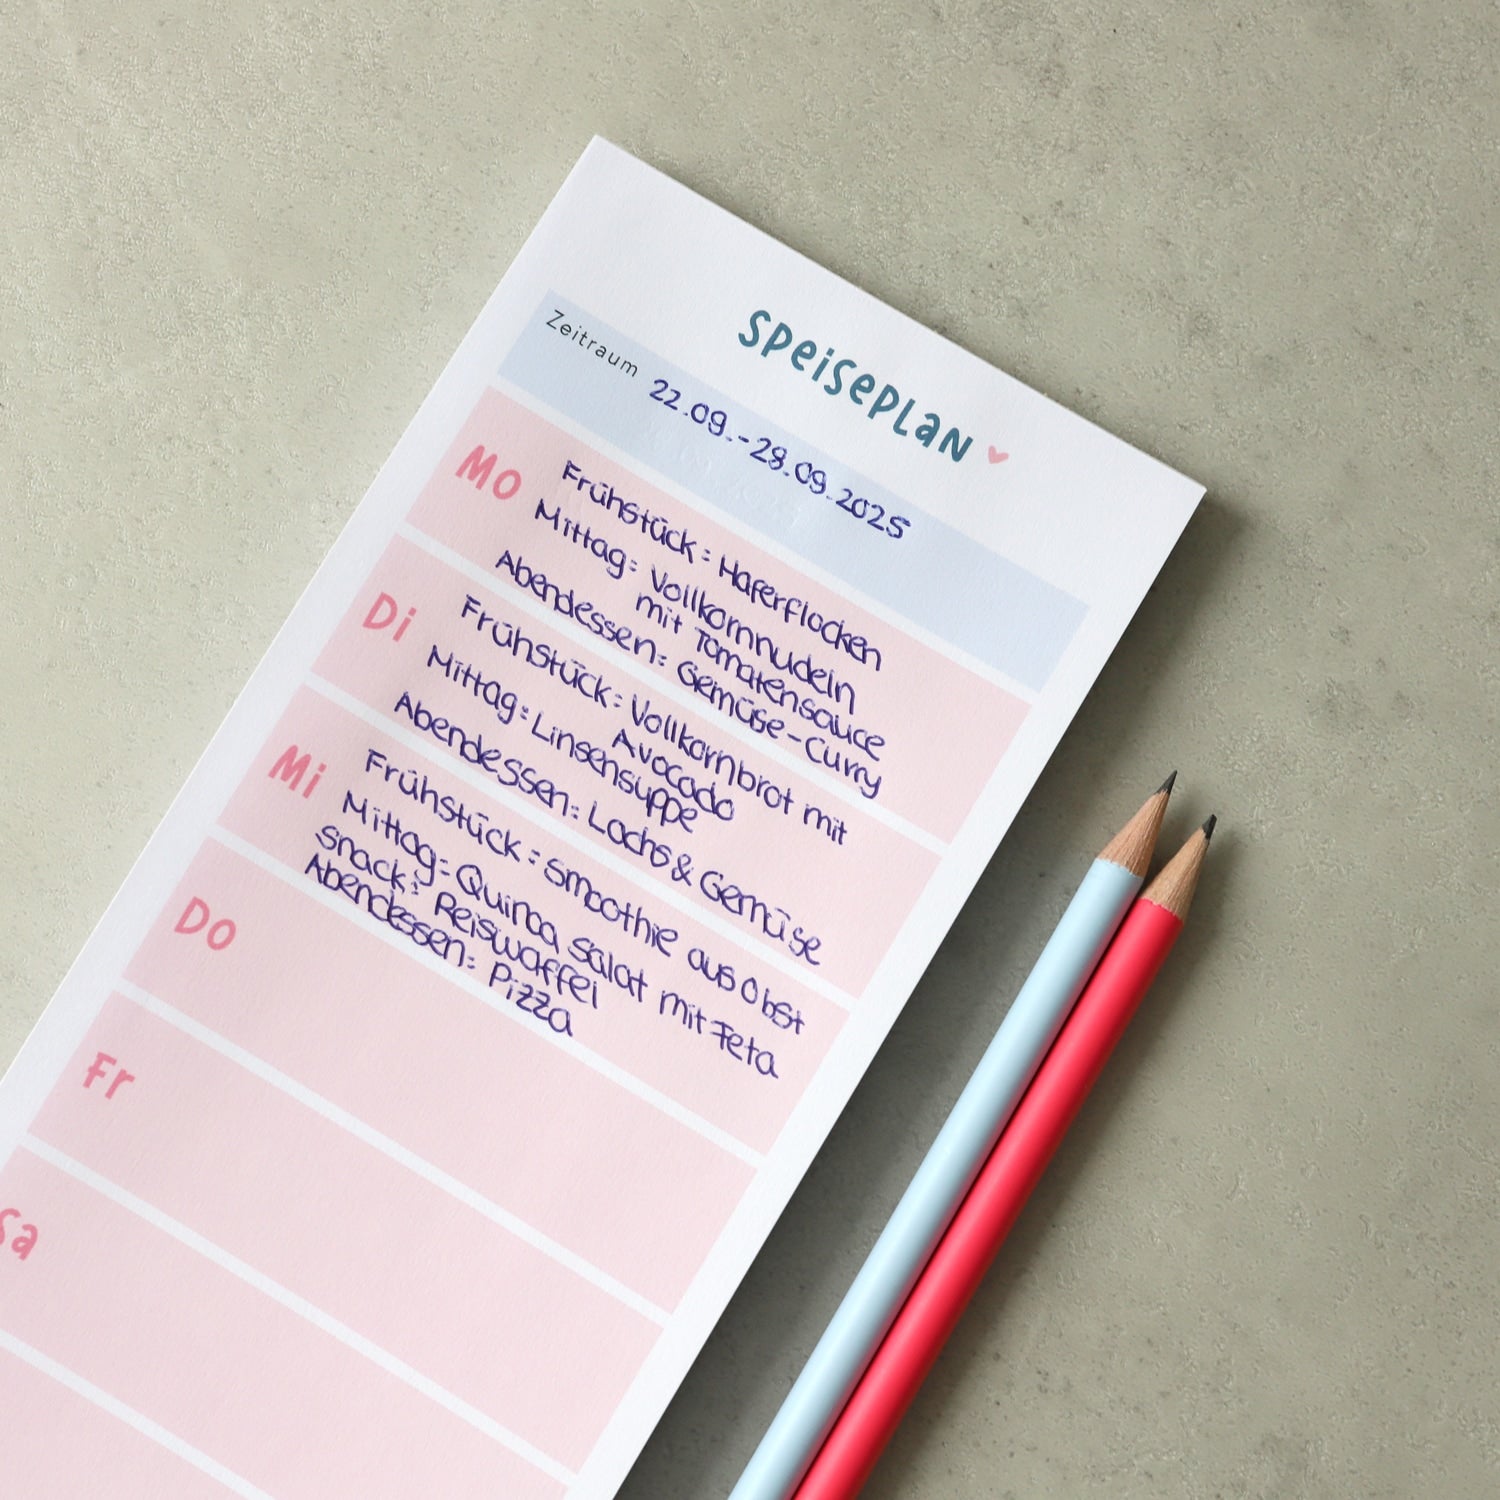 Speiseplan
Zeitraum 22.09.-28.09.2025
Mo
Frühstück: Haferflocken
Mittag: Vollkornnudeln
mit Tomatensauce
Abendessen: Gemüse-Curry
Di
Frühstück: Vollkornbrot mit
Avocado
Mittag: Linsensuppe
Abendessen: Lachs & Gemüse
Mi
Frühstück: Smoothie aus Obst
Mittag: Quinoa Salat mit Feta
Snack: Reiswaffel
Abendessen: Pizza
Do
Fr
Sa